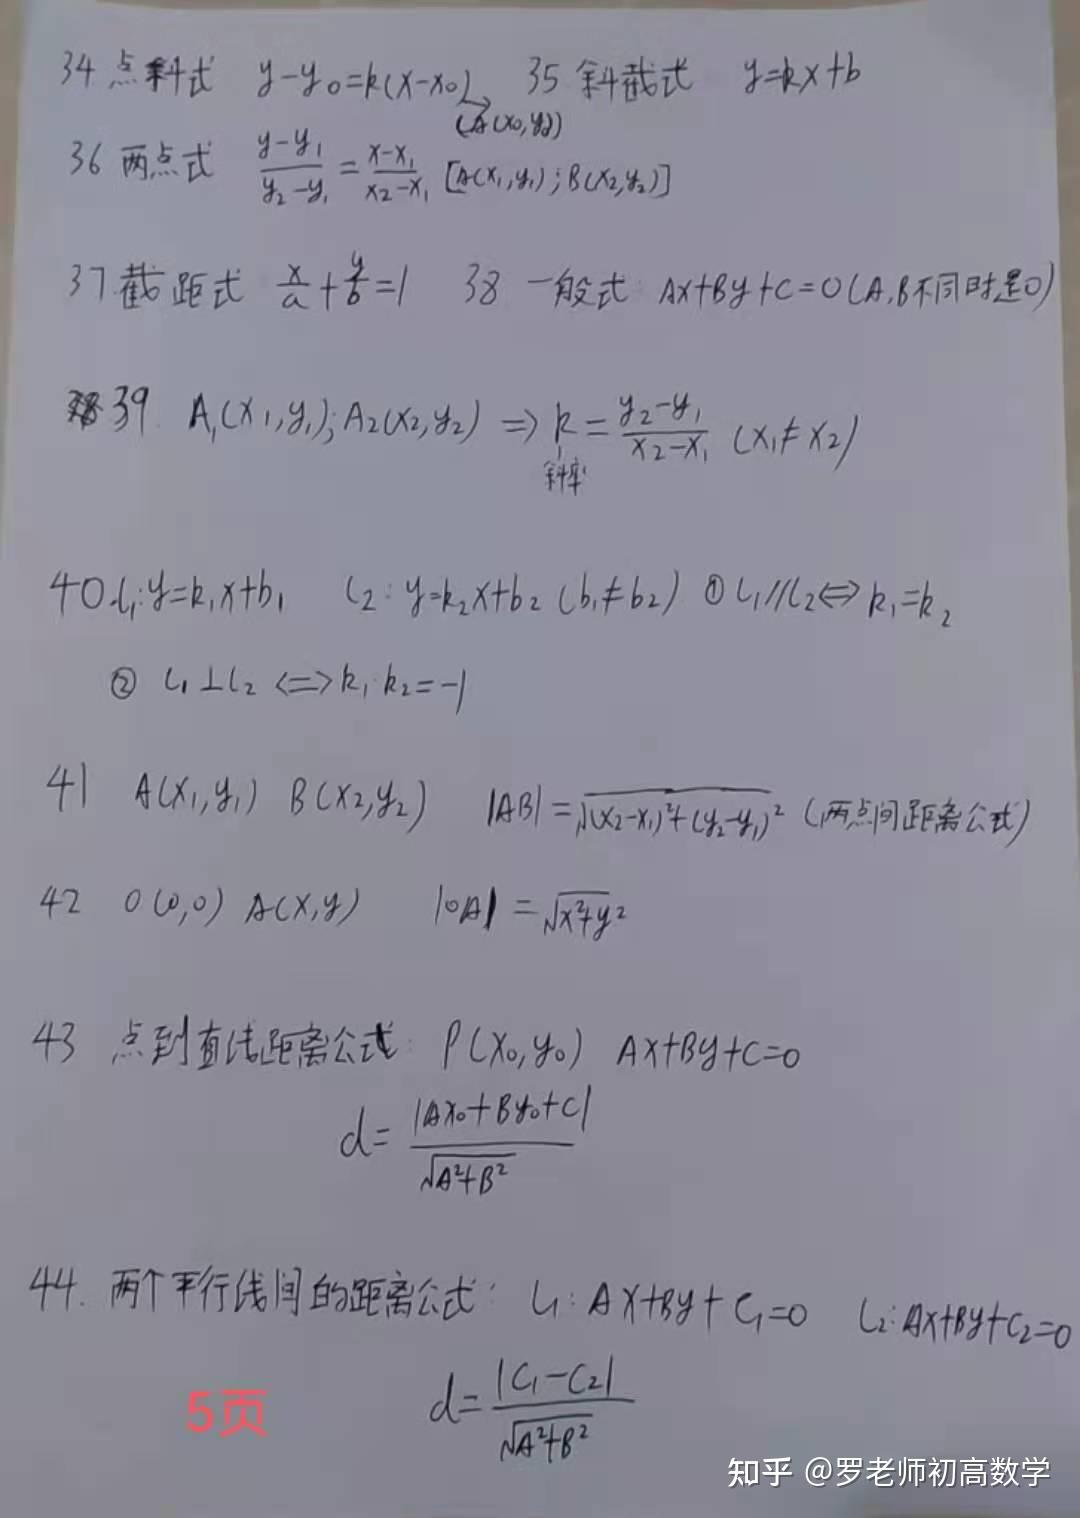 34 点斜式 y-y₀=k(x-x₀) 35 斜截式 y=kx+b
(A(x₀,y₀))
36 两点式 \frac{y-y₁}{y₂-y₁}=\frac{x-x₁}{x₂-x₁} [A(x₁,y₁);B(x₂,y₂)]
37.截距式 \frac{x}{a}+\frac{y}{b}=1 38 一般式: Ax+By+C=0(A,B不同时是0)
39. A₁(x₁,y₁);A₂(x₂,y₂) ⇒ k=\frac{y₂-y₁}{x₂-x₁} (x₁≠x₂)
斜率
40.l₁:y=k₁x+b₁ l₂:y=k₂x+b₂ (b₁≠b₂) ① l₁//l₂⇔k₁=k₂
② l₁⊥l₂ <=> k₁·k₂=-1
41 A(x₁,y₁) B(x₂,y₂) |AB|=√(x₂-x₁)²+(y₂-y₁)² (两点间距离公式)
42 O(0,0) A(x,y) |OA|=√x²+y²
43 点到直线距离公式: P(x₀,y₀) Ax+By+C=0
d=\frac{|Ax₀+By₀+C|}{√A²+B²}
44. 两个平行线间的距离公式: l₁:Ax+By+C₁=0 l₂:Ax+By+C₂=0
d=\frac{|C₁-C₂|}{√A²+B²}
5页
知乎 @罗老师初高数学